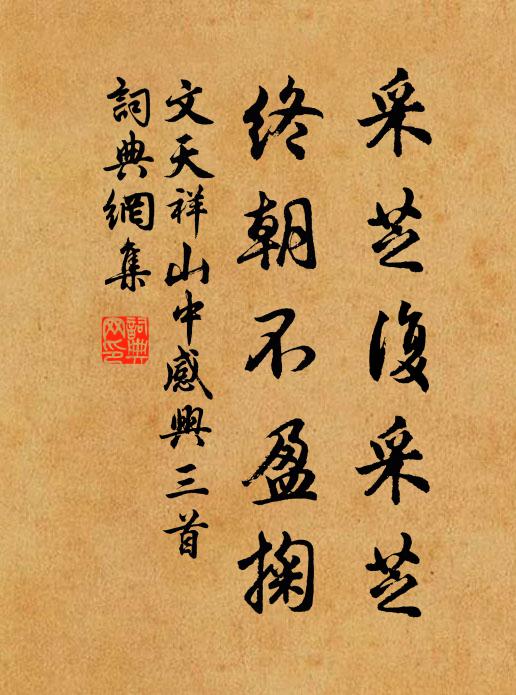 采芝復采芝
終朝不盈掬
文天祥山中感興三首
詞典網集
詞典网印